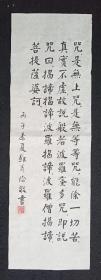 咒是無上咒是無等等咒能除一切苦
真實不虛故說般若波羅蜜多咒即說
咒曰揭諦揭諦波羅揭諦波羅僧揭諦
菩提薩婆訶
丙子夏敬書